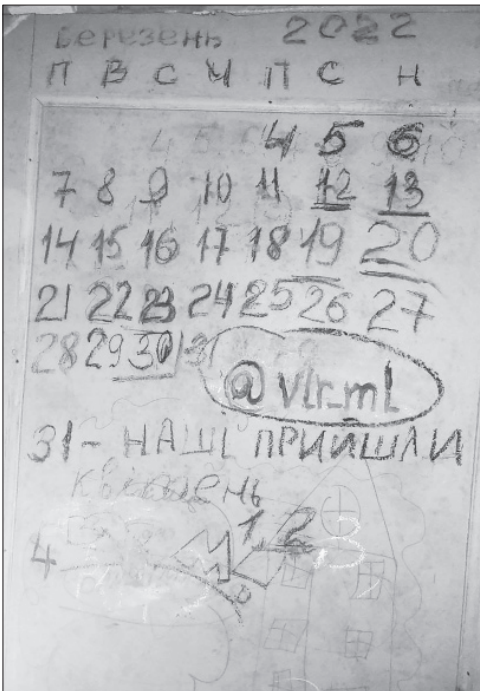 Березень 2022
П В С Ч П С Н
4 5 6
7 8 9 10 11 12 13
14 15 16 17 18 19 20
21 22 23 24 25 26 27
28 29 30 31
@vlr_ml
31 - НАШІ ПРИЙШЛИ
Квітень
1 2 3
4